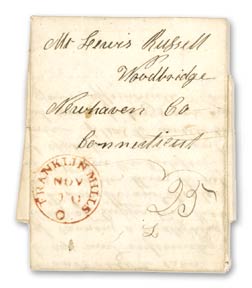 Mr Lewis Russell
Woodbridge
Newhaven Co
Connecticut
FRANKLIN MILLS
NOV
O
25